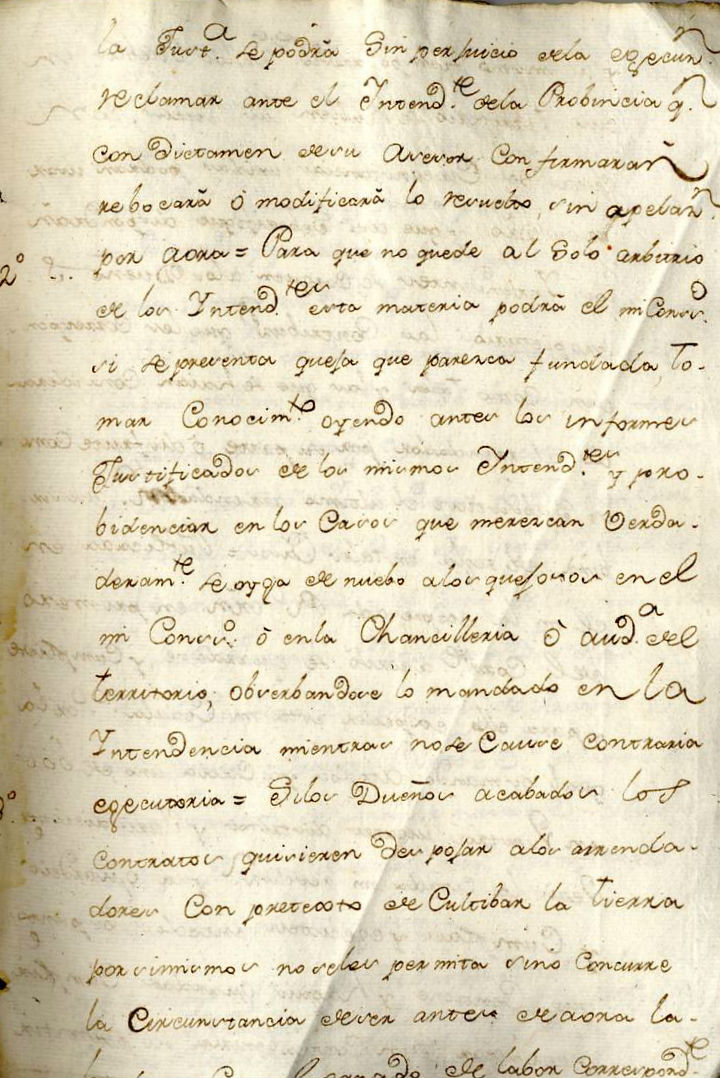 la Just.ª se podrá sin perjuicio de la egecun.
reclamar ante el Intend.te de la Probincia q.
con Dictamen de su Asesor Confirmarán
rebocará ó modificará lo resuelto, sin apelan.
2º por aora = Para que no quede al Solo arbitrio
de los Yntend.tes esta materia podrá el mi Cons.º
si se presenta queja que paresca fundada, to-
mar Conocim.to oyendo antes los informes
Justificados de los mismos Intend.tes y pro-
bidenciar en los Casos que merezcan Verda-
deram.te se oyga de nuebo a los quejosos en el
mi Cons.º ó en la Chancilleria ó aud.ª del
territorio, obserbandose lo mandado en la
Yntendencia mientras no se Cause contraria
egecutoria = Si los Dueños acabados los
Contratos quisieren despojar a los arrenda-
dores Con pretexto de Cultibar la tierra
por simismos no se les permita sino Concurre
la Circunstancia de ser antes de aora la-
de labor correspond.te